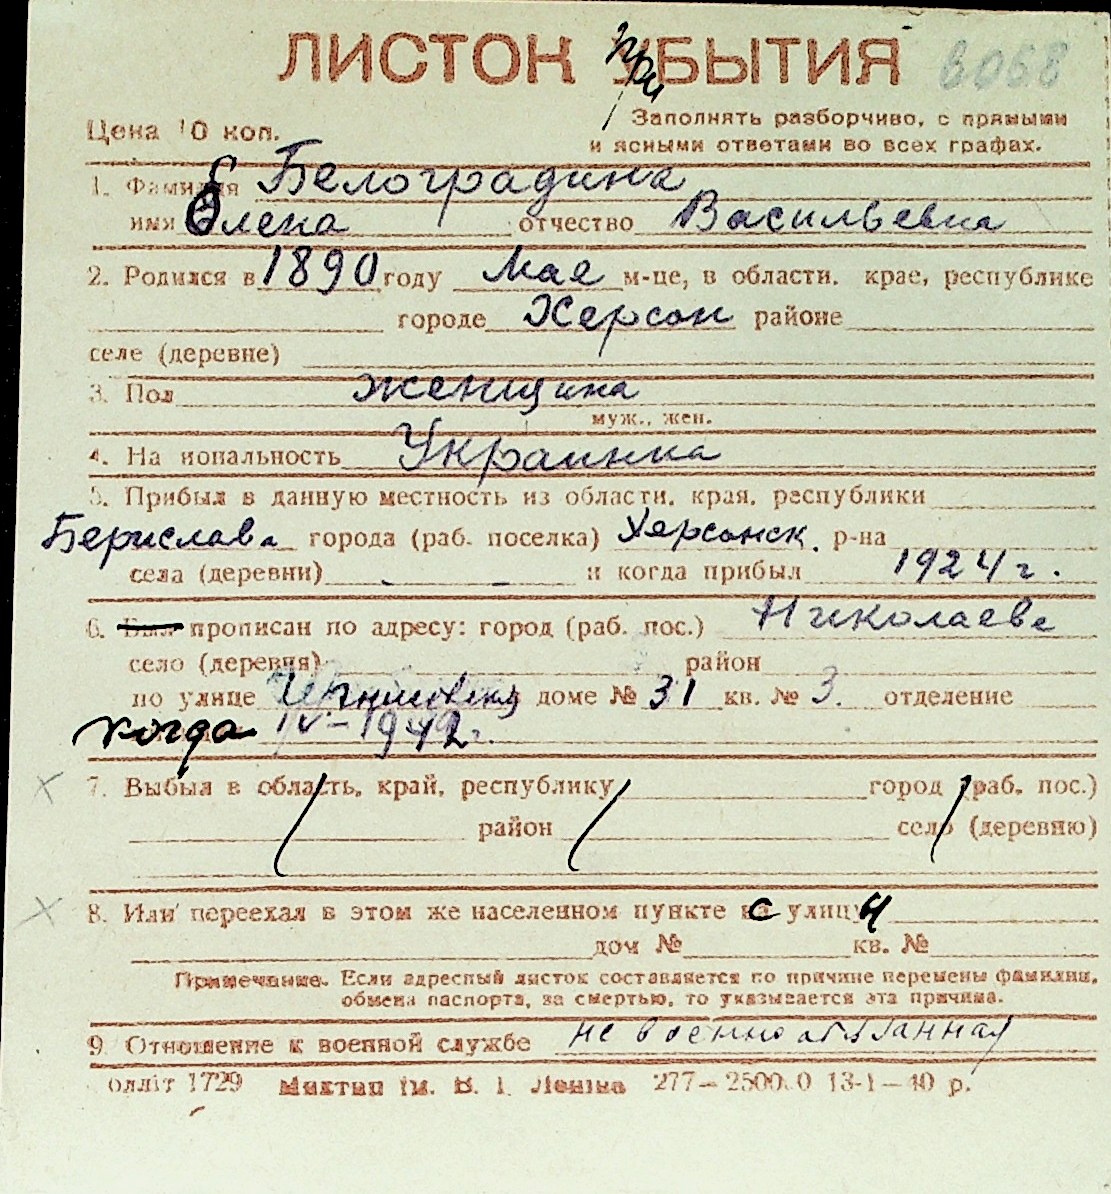 ЛИСТОК ПриБЫТИЯ 6068
Цена 10 коп.
Заполнять разборчиво, с прямыми
и ясными ответами во всех графах.
1. Фамилия Белоградина
имя Елена отчество Васильевна
2. Родился в 1890 году Мае м-це, в области, крае, республике
городе Херсон районе
селе (деревне)
3. Пол женщина
муж., жен.
4. Национальность Украинка
5. Прибыл в данную местность из области, края, республики
Берислава города (раб. поселка) Херсонск. р-на
села (деревни) - - и когда прибыл 1924 г.
6. Был прописан по адресу: город (раб. пос.) Николаеве
село (деревня) район
по улице доме № 31 кв. № 3. отделение
когда IV-1942 г.
7. Выбыл в область, край, республику город (раб. пос.)
район село (деревню)
8. Или переехал в этом же населенном пункте с улицы
дом № кв. №
Примечание. Если адресный листок составляется по причине перемены фамилии,
обмена паспорта, за смертью, то указывается эта причина.
9. Отношение к военной службе не военнообязанная
олліт 1729 ім. В. І. Леніна 277—25000 13-1—40 р.